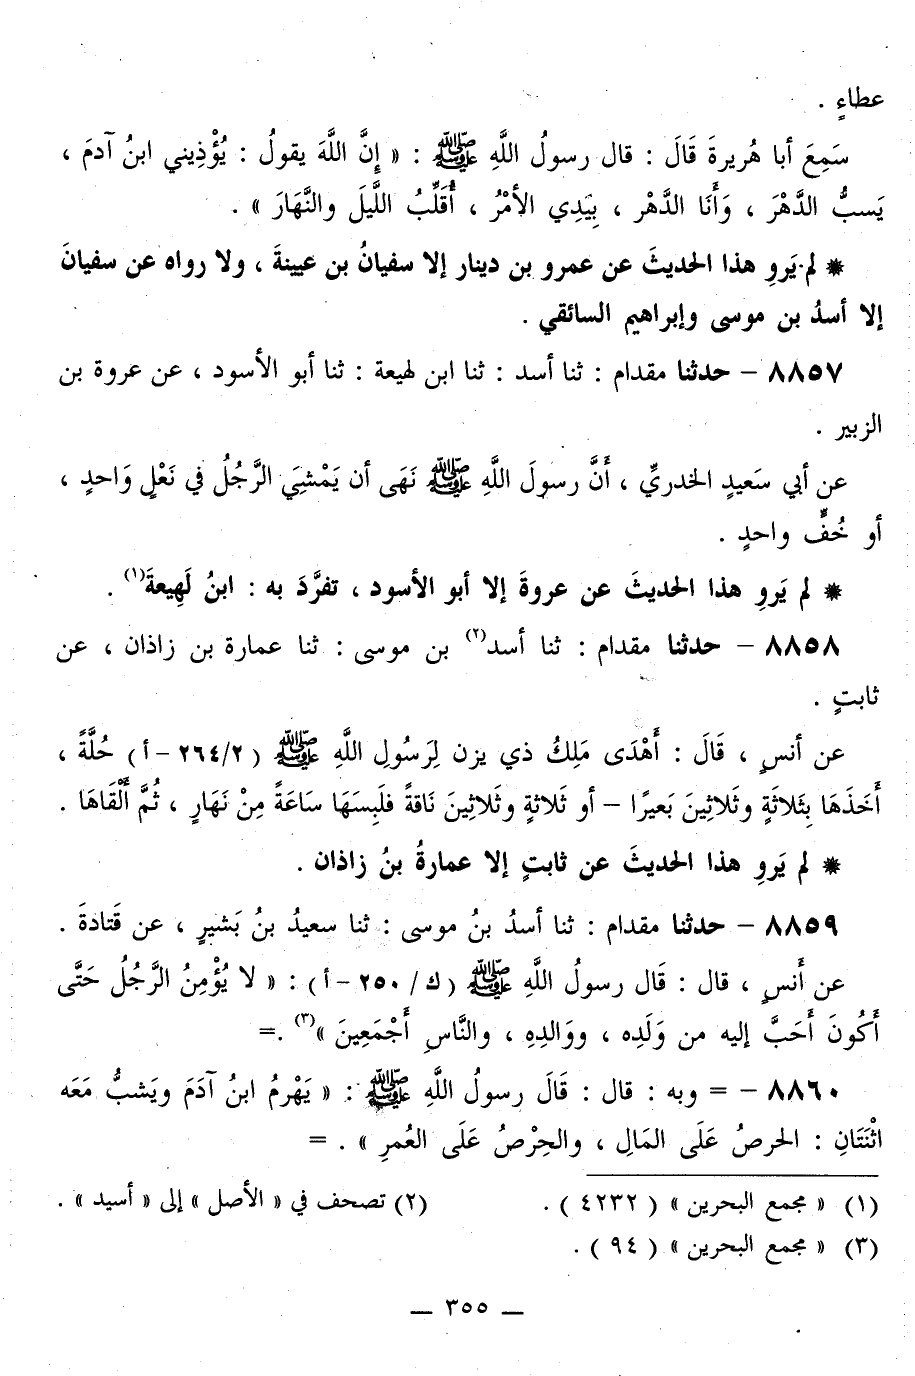 عطاءٍ .
سَمِعَ أبا هُريرةَ قَالَ : قال رسولُ اللَّهِ ﷺ : « إِنَّ اللَّهَ يقولُ : يُؤْذِيني ابنُ آدمَ ،
يَسبُّ الدَّهْرَ ، وَأَنَا الدَّهْر ، بِيَدِي الأمْرُ ، أُقَلِّبُ اللَّيلَ والنَّهَارَ » .
* لم يَروِ هذا الحديثَ عن عمرو بن دينار إلا سفيانُ بن عيينةَ ، ولا رواه عن سفيانَ
إلا أسدُ بن موسى وإبراهيم السائقي .
٨٨٥٧ – حدثنا مقدام : ثنا أسد : ثنا ابن لهيعة : ثنا أبو الأسود ، عن عروة بن
الزبير .
عن أبي سَعيدٍ الخدريِّ ، أَنَّ رسولَ اللَّهِ ﷺ نَهَى أن يَمْشِيَ الرَّجُلُ في نَعْلٍ وَاحدٍ ،
أو خُفٍّ واحدٍ .
* لم يَروِ هذا الحديثَ عن عروةَ إلا أبو الأسود ، تفرَّدَ به : ابنُ لَهِيعةَ(١) .
٨٨٥٨ – حدثنا مقدام : ثنا أسد(٢) بن موسى : ثنا عمارة بن زاذان ، عن
ثابتٍ .
عن أنسٍ ، قَالَ : أَهْدَى مَلِكُ ذي يزن لِرَسُولِ اللَّهِ ﷺ ( ٢٦٤/٢ – أ ) حُلَّةً ،
أَخَذَهَا بِثَلاثَةٍ وثَلاثِينَ بَعيرًا – أو ثَلاثةٍ وثَلاثِينَ نَاقةً فلَبِسَهَا سَاعَةً مِنْ نَهَارٍ ، ثُمَّ أَلْقَاهَا .
* لم يَروِ هذا الحديثَ عن ثابتٍ إلا عمارةُ بنُ زاذان .
٨٨٥٩ – حدثنا مقدام : ثنا أسدُ بنُ موسى : ثنا سعيدُ بنُ بَشيرٍ ، عن قَتادةَ .
عن أَنسٍ ، قال : قَال رسولُ اللَّهِ ﷺ ( ك / ٢٥٠ – أ ) : « لا يُؤْمِنُ الرَّجُلُ حَتَّى
أَكُونَ أَحَبَّ إليه من وَلَدِه ، ووَالدِهِ ، والنَّاسِ أَجْمَعِينَ »(٣) .=
٨٨٦٠ – = وبه : قال : قَالَ رسولُ اللَّهِ ﷺ : « يَهْرمُ ابنُ آدَمَ ويَشبُّ مَعَه
اثْنَتَانِ : الحرصُ عَلَى المَالِ ، والحِرْصُ عَلَى العُمرِ » . =
(١) « مجمع البحرين » ( ٤٢٣٢ ) . (٢) تصحف في « الأصل » إلى « أسيد » .
(٣) « مجمع البحرين » ( ٩٤ ) .
— ٣٥٥ —